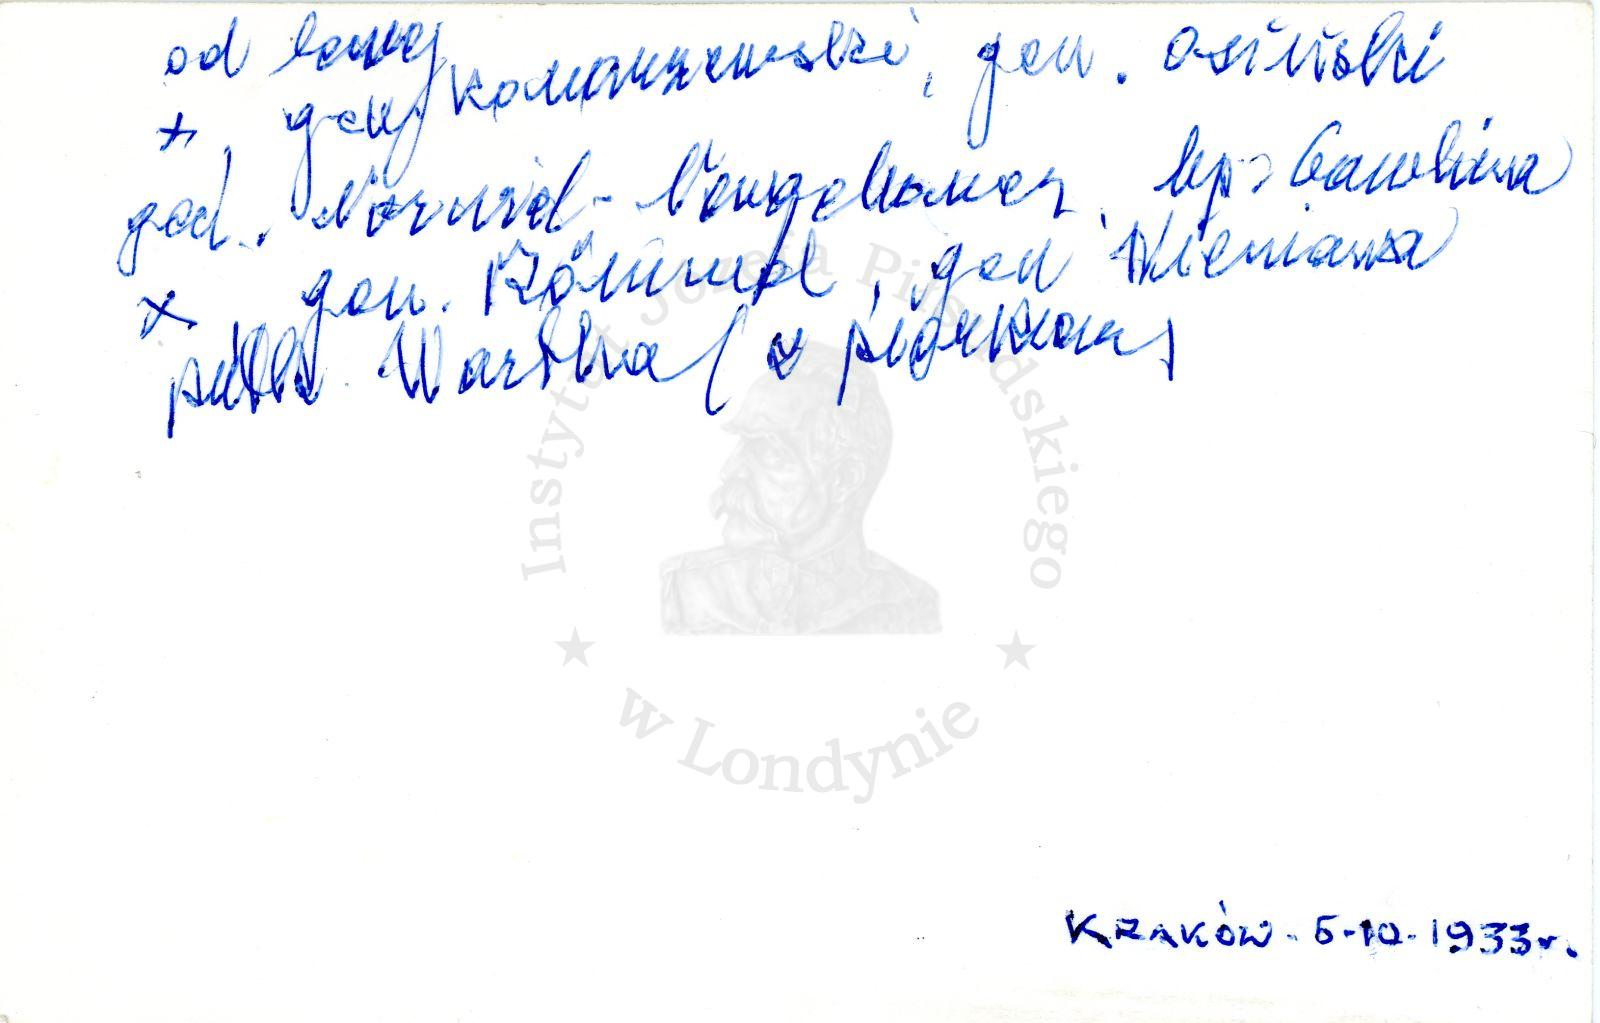 od lewej
x gen. Romaszewski, gen. Osiński
gen. Norwid-Neugebauer, bp. Gawlina
x gen. Römmel, gen Wieniawa
płk. Wartha (z piórkiem)
Instytut Józefa Piłsudskiego
w Londynie
KRAKÓW - 6-10-1933r.